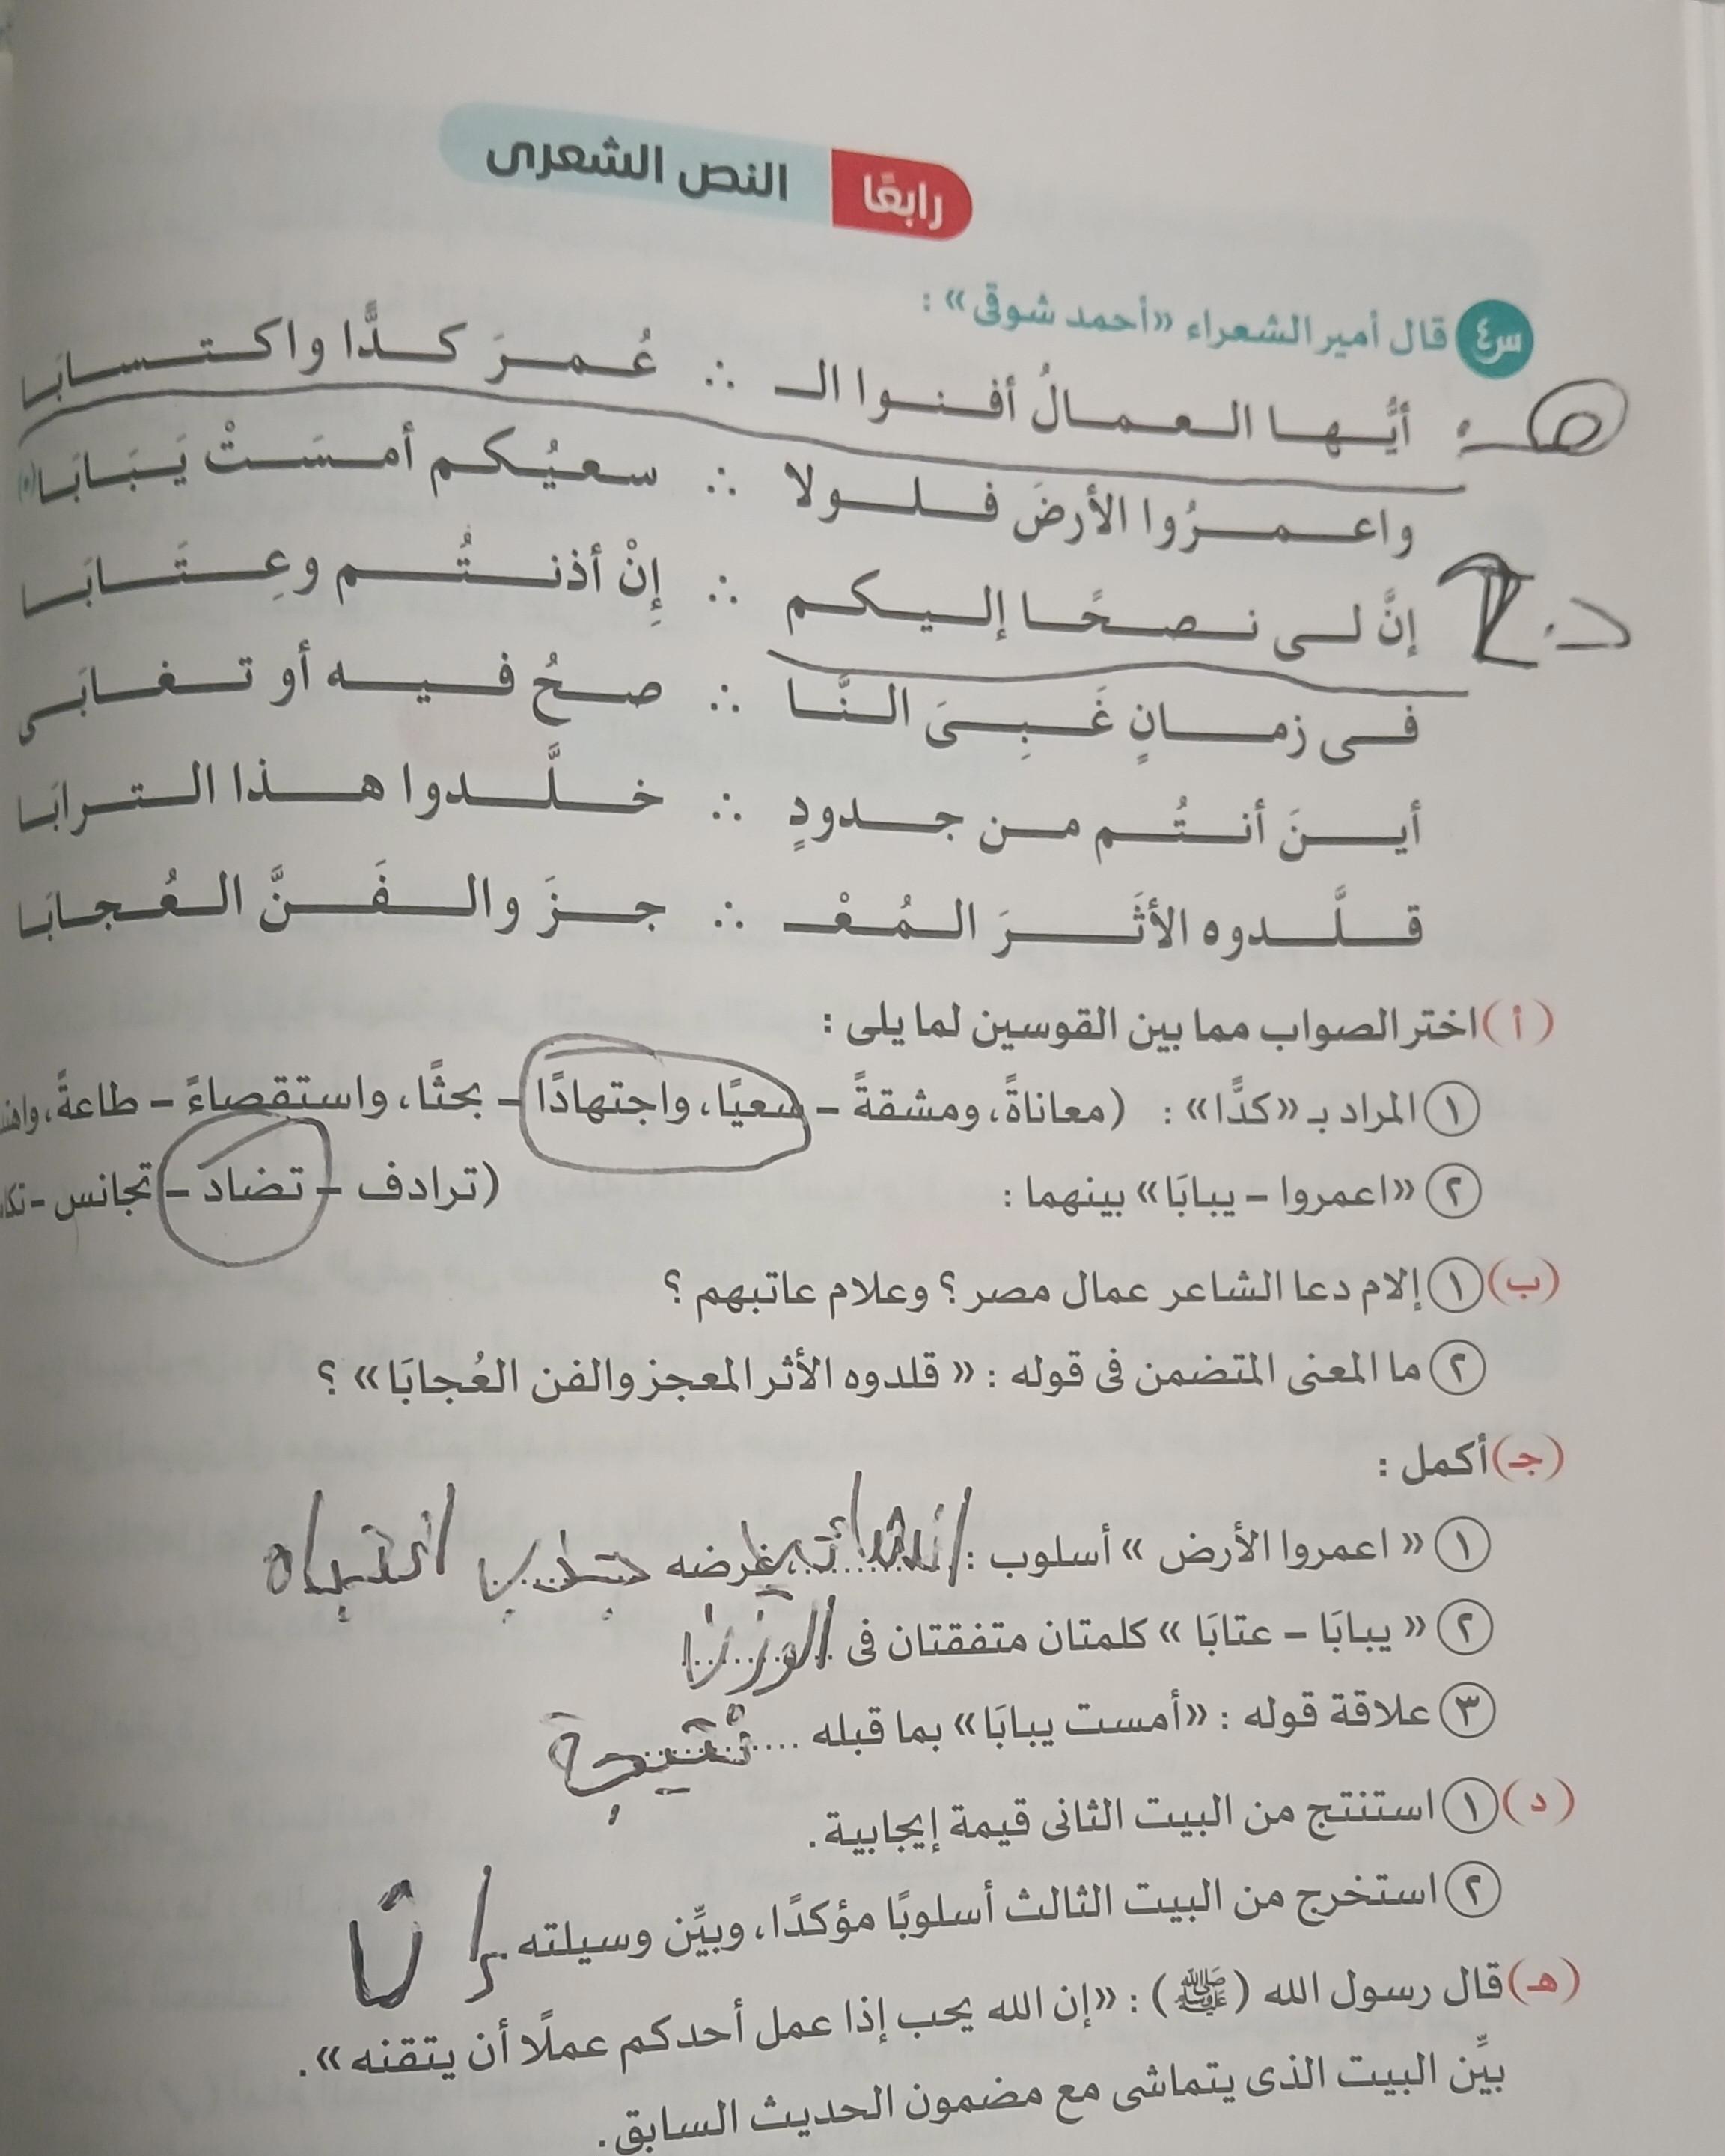 رابعًا النص الشعرى
س٤ قال أمير الشعراء «أحمد شوقى» :
هـ أيُّها العمالُ أفنوا الـ ∴ عُمرَ كدًّا واكتسابَا
واعمرُوا الأرضَ فلولا ∴ سعيُكم أمسَتْ يَبَابَا
د. إنَّ لى نصحًا إليكم ∴ إنْ أذنتُم وعِتَابَا
فى زمانٍ غَبِىَ النَّا ∴ صحُ فيه أو تغابَى
أينَ أنتُم من جدودٍ ∴ خلَّدوا هذا الترابَا
قلَّدوه الأثَرَ المُعْـ ∴ جزَ والفَنَّ العُجابَا
(أ) اختر الصواب مما بين القوسين لما يلى :
١ المراد بـ «كدًّا» : (معاناةً، ومشقةً – سعيًا، واجتهادًا – بحثًا، واستقصاءً – طاعةً،
٢ «اعمروا – يبابَا» بينهما : (ترادف – تضاد – تجانس –
(ب) ١ إلام دعا الشاعر عمال مصر ؟ وعلام عاتبهم ؟
٢ ما المعنى المتضمن فى قوله : « قلدوه الأثر المعجز والفن العُجابَا» ؟
(جـ) أكمل :
١ « اعمروا الأرض » أسلوب : إنشائى غرضه جذب انتباه
٢ « يبابَا – عتابَا » كلمتان متفقتان فى الوزن
٣ علاقة قوله : «أمست يبابَا» بما قبله نتيجة
(د) ١ استنتج من البيت الثانى قيمة إيجابية .
٢ استخرج من البيت الثالث أسلوبًا مؤكدًا، وبيِّن وسيلته إنّ
(هـ) قال رسول الله (ﷺ) : «إن الله يحب إذا عمل أحدكم عملًا أن يتقنه» .
بيِّن البيت الذى يتماشى مع مضمون الحديث السابق .